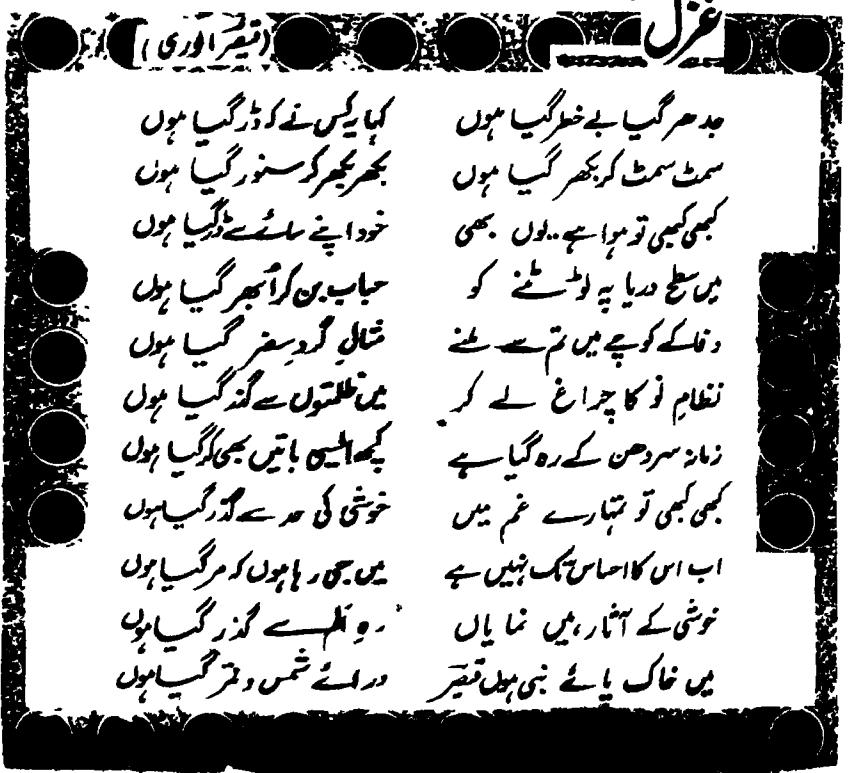 غزل
(قیصر انوری)
جدھر گیا بے خطر گیا ہوں کہا یہ کس نے کہ ڈر گیا ہوں
سمٹ سمٹ کر بکھر گیا ہوں بکھر بکھر کر سنور گیا ہوں
کبھی کبھی تو ہوا ہے یوں بھی خود اپنے سائے سے ڈر گیا ہوں
میں سطح دریا پہ لوٹنے کو حباب بن کر اُبھر گیا ہوں
وفا کے کوچے میں تم سے ملنے مثالِ گردِ سفر گیا ہوں
نظامِ نو کا چراغ لے کر میں ظلمتوں سے گذر گیا ہوں
زمانہ سر دھن کے رہ گیا ہے کچھ ایسی باتیں بھی کر گیا ہوں
کبھی کبھی تو تمہارے غم میں خوشی کی حد سے گذر گیا ہوں
اب اس کا احساس تک نہیں ہے میں جی رہا ہوں کہ مر گیا ہوں
خوشی کے آثار ہیں نمایاں رہِ الم سے گذر گیا ہوں
میں خاک پائے نبی ہوں قیصر ورائے شمس و قمر گیا ہوں